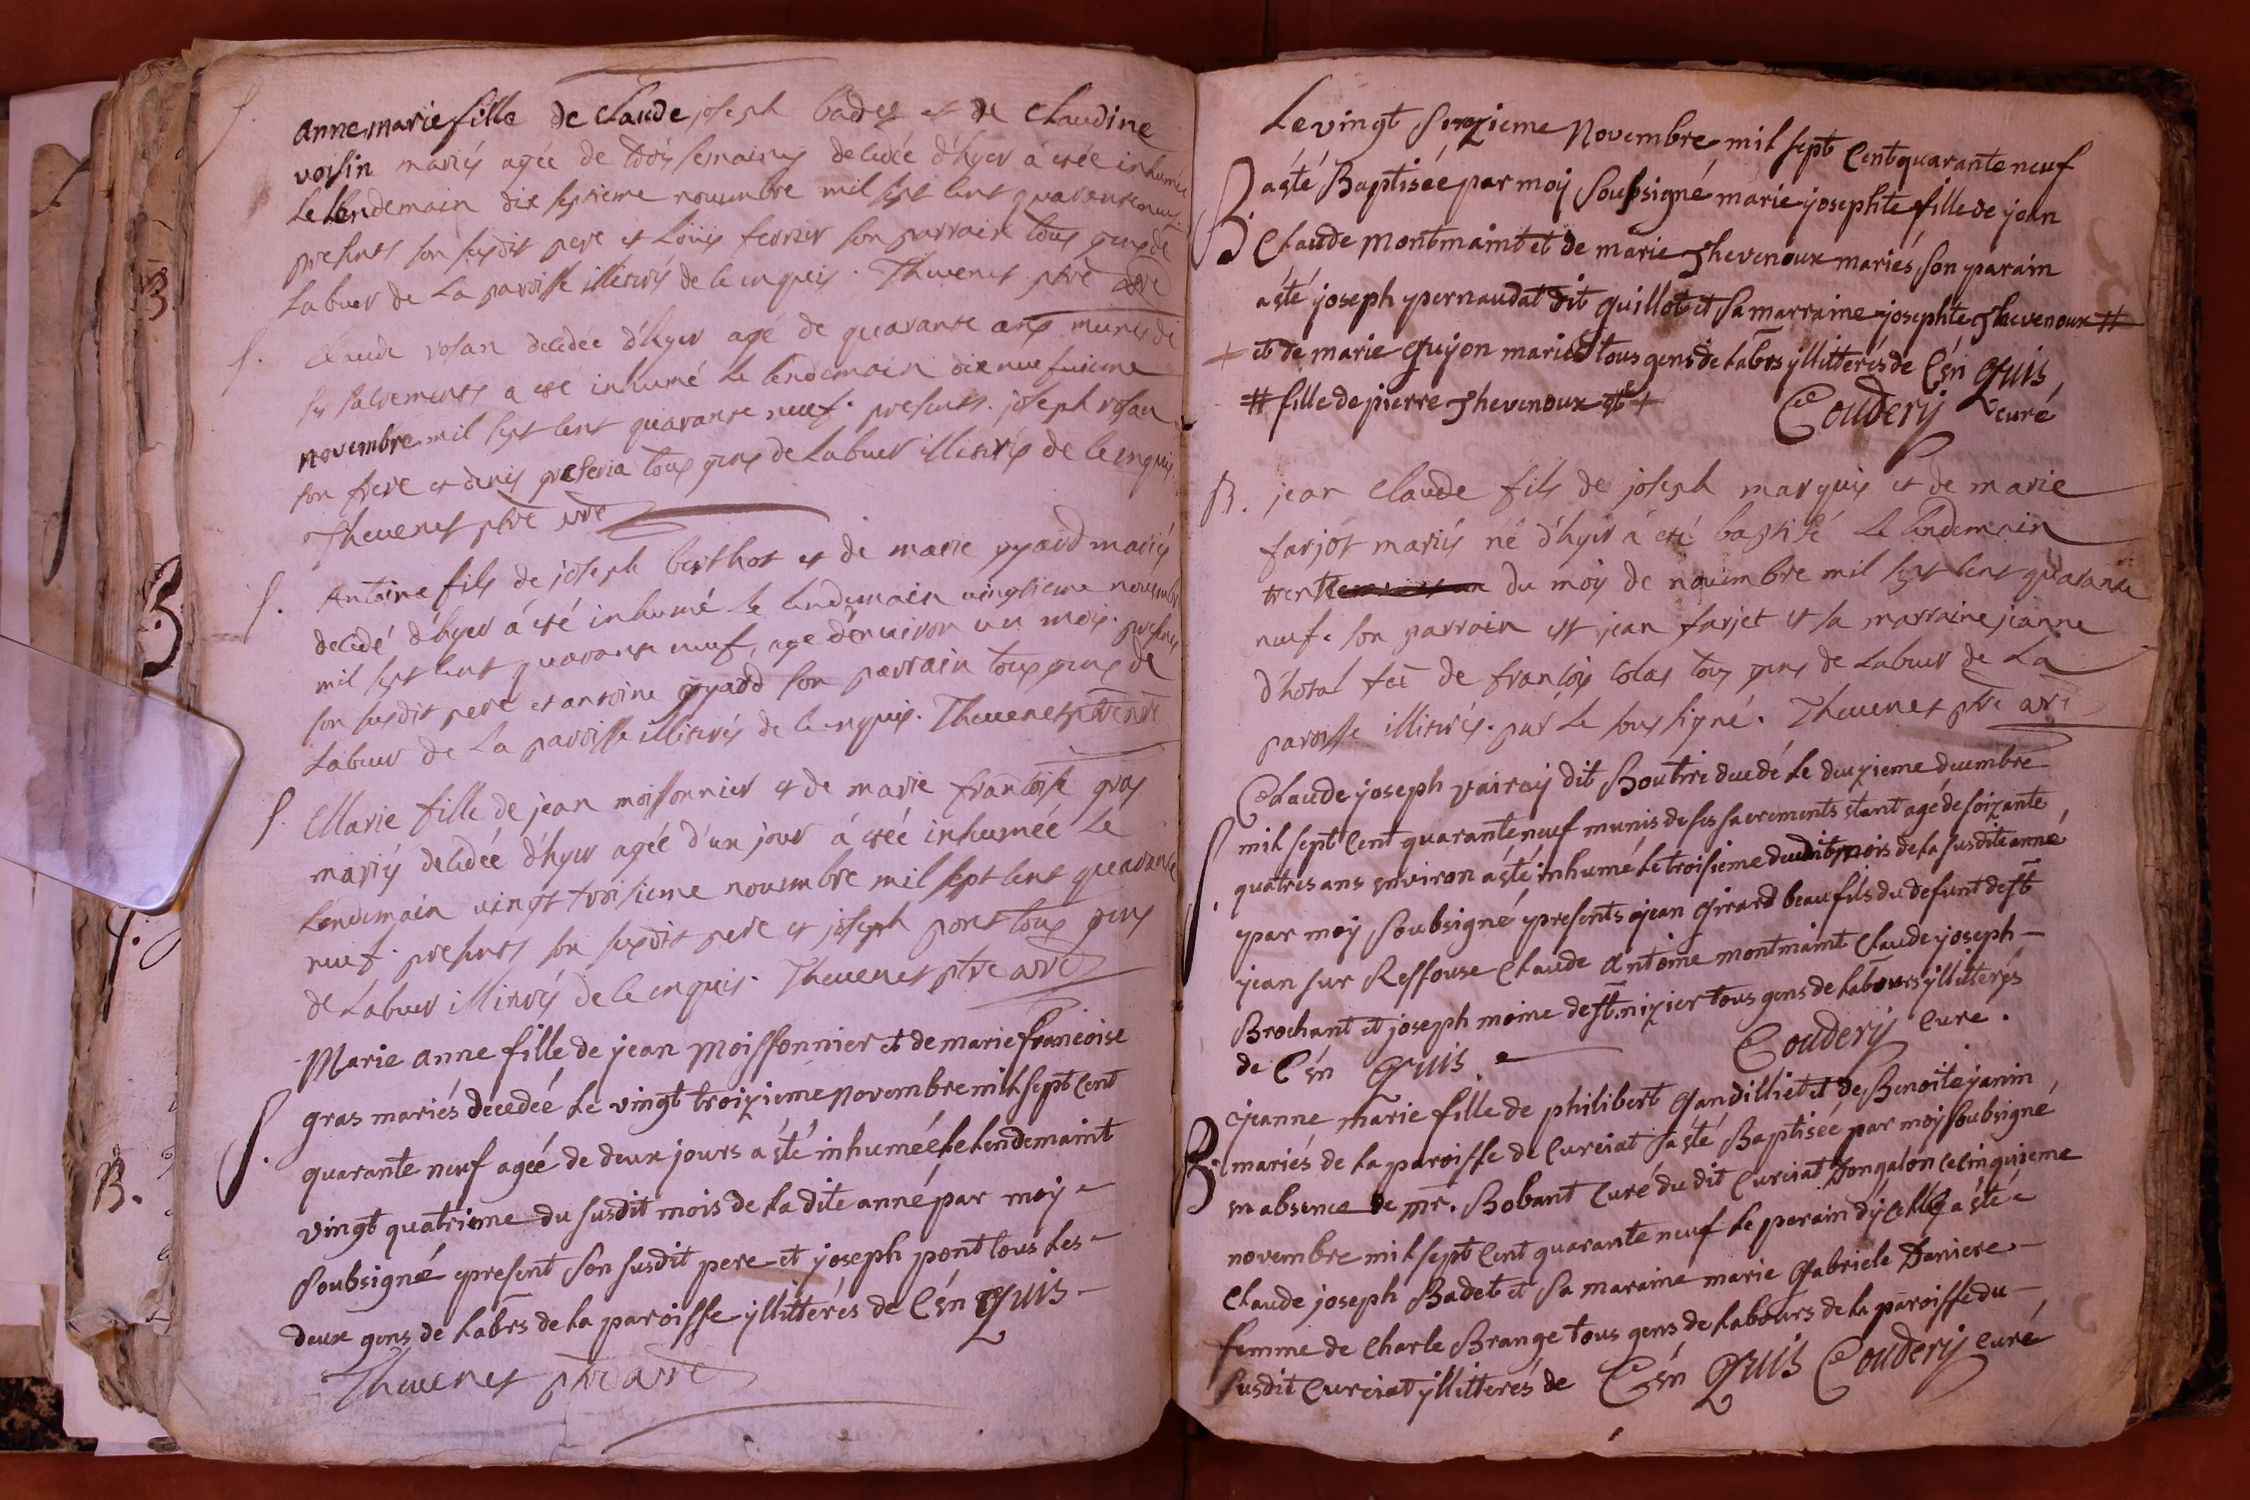 S.
anne marie fille de Claude joseph badet et de Claudine
voisin mariés agée de trois semaines decedée d'hyer á étée inhumée
le lendemain dix septieme novembre mil sept cent quarante neuf
presents son susdit pere et Loüis ferrier son parrain tous gens de
labeur de la paroisse illitérés de ce enquis. Thevenet ptre
S.
Claude rosan decedée d'hyer agé de quarante ans munis de
ses sacrements a été inhumé le lendemain dix neufvieme
novembre mil sept cent quarante neuf. presents. joseph rosan
son frere et denis tous gens de labeur illitérés de ce enquis
Thevenet ptre
S.
Antoine fils de joseph berthot et de marie gyard mariés
decedé d'hyer á été inhumé le lendemain vingtieme novembre
mil sept cent quarante neuf, agé d'environ un mois. presents
son susdit pere et antoine gyard son parrain tous gens de
labeur de la paroisse illitérés de ce enquis. Thevenet ptre
S.
Marie fille de jean moissonnier et de marie francoise gras
mariés decedée d'hyer agée d'un jour á étée inhumée le
lendemain vingt troisieme novembre mil sept cent quarante
neuf. presents son susdit pere et joseph pont tous gens
de labeur illitérés de ce enquis. Thevenet ptre
Marie anne fille de jean Moissonnier et de marie francoise
S.
gras mariés decedée le vingt troizieme novembre mil sept cent
quarante neuf agée de deux jours á êté inhumée le lendemaint
vingt quatrieme du susdit mois de la dite anné par moy
soubsigné present son susdit pere et joseph pont tous les
deux gens de labrs de la paroisse yllitterés de C'én Quis
Thevenet ptre
Le vingt novembre mil sept Cent quarante neuf
B.
a êté Baptisée par moy soubsigné marie josephte fille de jean
Claude montmaint et de marie Thevenoux mariés, son parain
a êté joseph pernaudat dit guillot et sa marraine josephte Thevenoux #
+ et de marie Guyon mariés tous gens de labrs yllitterés de C'én Quis
# fille de pierre Thevenoux +
Coudery curé
B.
jean Claude fils de joseph marquis et de marie
farjot mariés né d'hyer á été baptisé le lendemain
trente du mois de novembre mil sept cent quarante
neuf. son parrain est jean farjet et sa marraine jeanne
d'hotal fe de francois colas tous gens de labeur de la
paroisse illitérés. par le sous signé. Thevenet ptre
Claude joseph vairay dit Boutire decedé le deuzieme decembre
S.
mil sept Cent quarante neuf munis de ses sacrements etant agé de soizante
quatres ans environ a êté inhumé le troisieme dudit mois de la susdite anné
par moy soubsigné presents jean Girard beaufils du defunt de st
jean sur Ressouse Claude antoine montmaint Claude joseph
Brochant et joseph moine de st. nizier tous gens de labours yllitterés
de C'én Quis
Coudery Cure.
B.
jeanne marie fille de philibert Gandilliet et de Benoite janin
mariés de la paroisse de Curciat a êté Baptisée par moy soubsigné
en absence de mr. Bobant Curé du dit Curciat Dongalon le cinquieme
novembre mil sept Cent quarante neuf le parain d'ycelle a êté
Claude joseph Badet et sa maraine marie Gabriele Daniere
femme de Charle Brange tous gens de labours de la paroisse du
susdit Curciat yllitterés de C'én Quis Coudery curé